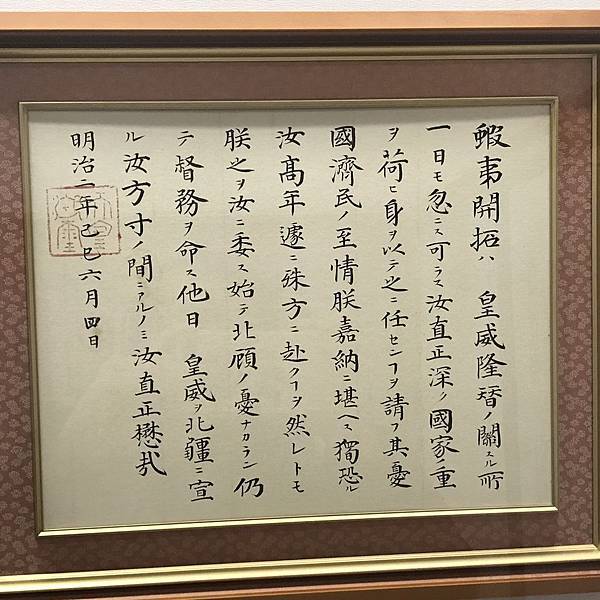 蝦夷開拓ハ　皇威隆替ノ關スル所
一日モ忽ニス可ラス汝直正深ク國家ノ重
ヲ荷ヒ身ヲ以テ之ニ任センヿヲ請フ其憂
國濟民ノ至情朕嘉納ニ堪ヘス獨恐ル
汝高年遽ニ殊方ニ赴クヿヲ然レトモ
朕之ヲ汝ニ委ス始テ北顧ノ憂ナカラン仍
テ督務ヲ命ス他日　皇威ヲ北疆ニ宣
ル汝方寸ノ間ニアルノミ汝直正懋哉
明治二年己巳六月四日